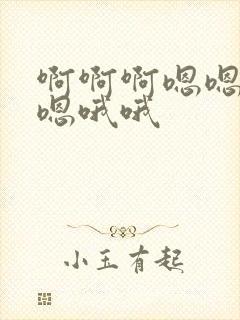 啊啊啊嗯嗯
嗯哦哦
小玉有起